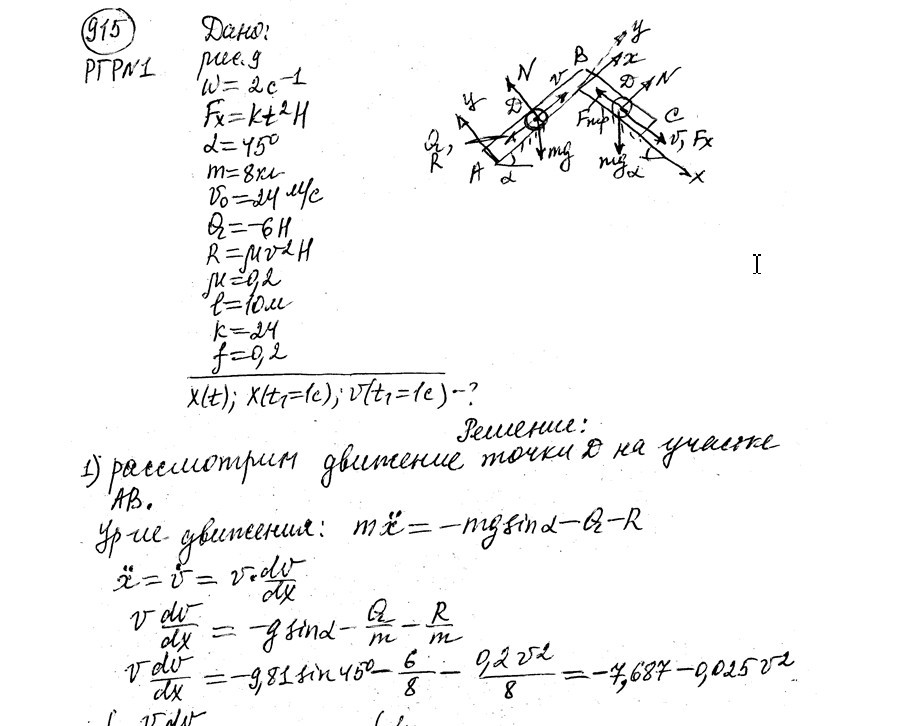 915
РГР№1
Дано:
рис. 9
ω = 2 с⁻¹
Fx = kt² Н
α = 45°
m = 8 кг
v₀ = 24 м/с
Q = -6 Н
R = μv² Н
μ = 0,2
l = 10 м
k = 24
f = 0,2
x(t); x(t₁=1с); v(t₁=1с) - ?
y
N
D
v
B
y
x
D
N
C
Fтр
v, Fx
Q,
R
A
α
mg
mg
α
x
Решение:
1) рассмотрим движение точки D на участке
АВ.
Ур-ие движения: mẍ = -mg sinα - Q - R
ẍ = v̇ = v · dv/dx
v dv/dx = -g sinα - Q/m - R/m
v dv/dx = -9,81 sin 45° - 6/8 - 0,2v²/8 = -7,687 - 0,025v²